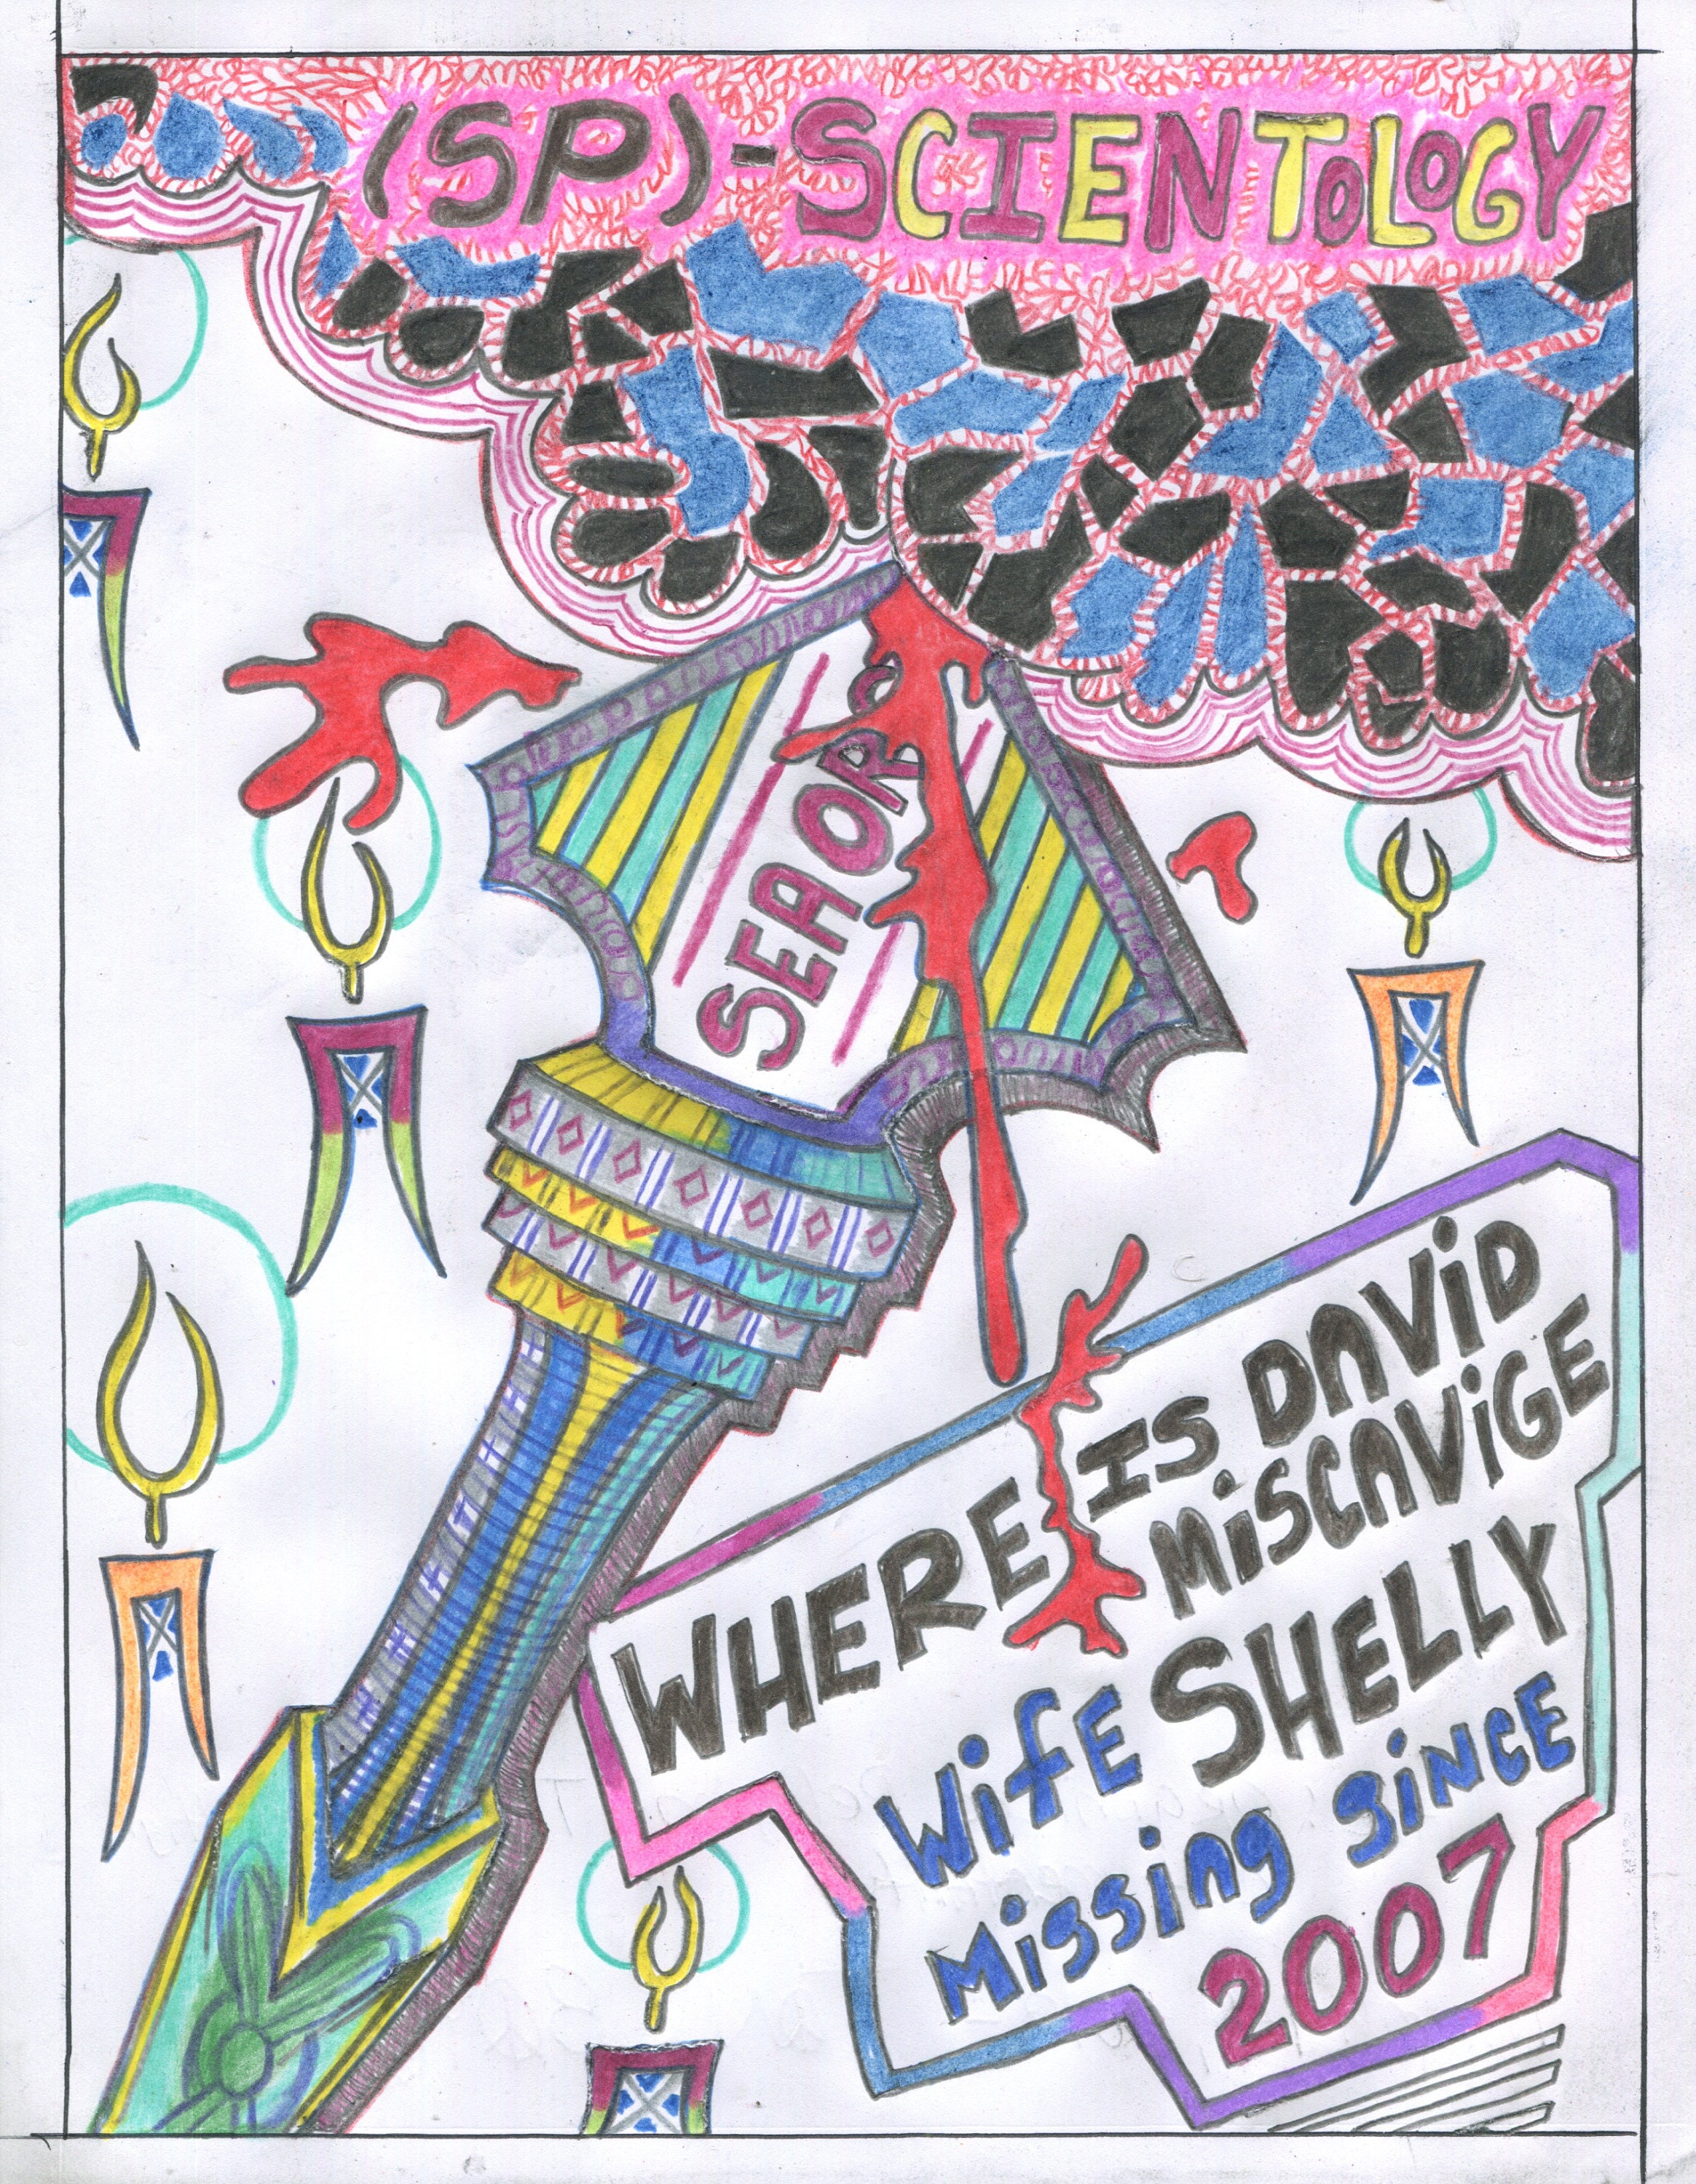 (SP)-SCIENTOLOGY
SEAORG
WHERE IS DAVID
MiSCAViGE
WifE SHELLY
Missing SiNCE
2007